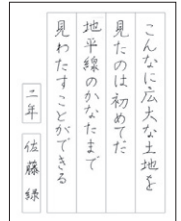 こんなに広大な土地を
見たのは初めてだ
地平線のかなたまで
見わたすことができる
二年 佐藤緑